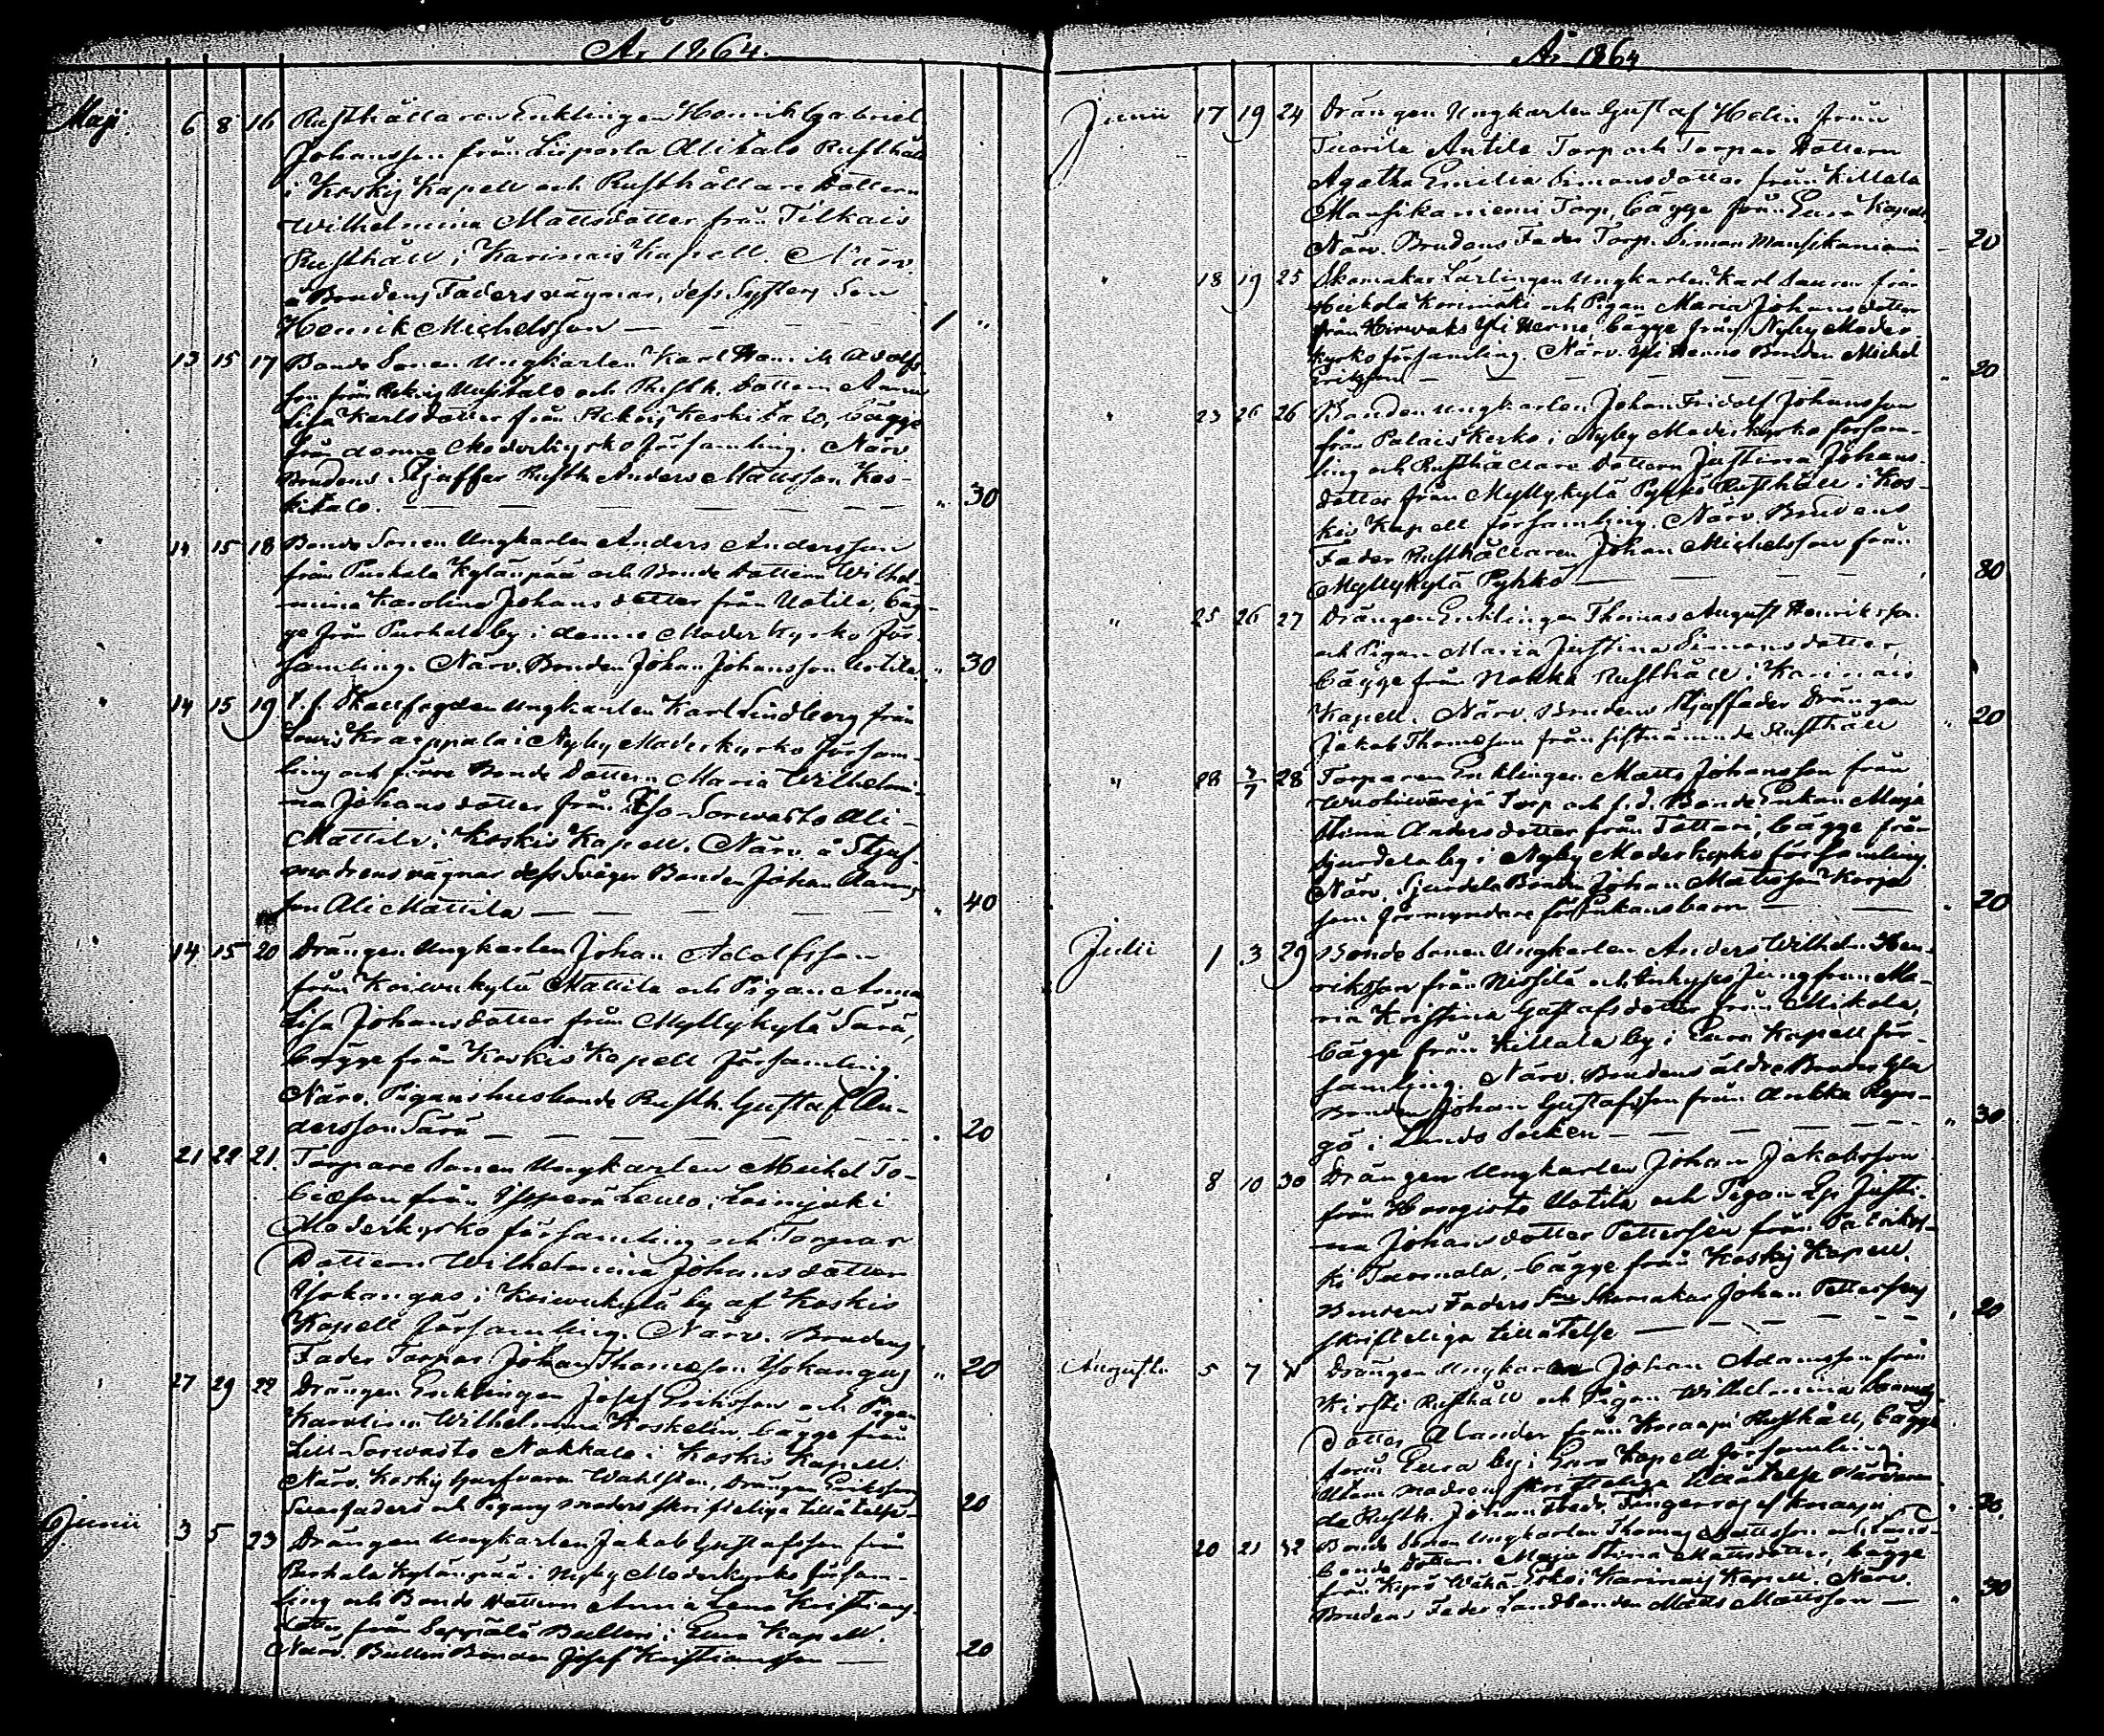 År 1864.
Maji 6 8 16 Rusthållaren Enklingen Henrik Gabriel
Johansson från Liiporla Alitalo Rusthåll
i Koskis Kapell och Rusthållare Dottern
Wilhelmina Mattsdotter från Tilkais
Rusthåll i Karinais Kapell. Närv.
å Brudens Faders vägnar, dess Systers Son
Henrik Michelsson — 1 "
" 13 15 17 Bonde Sonen Ungkarlen Karl Henrik Adolfs-
son från Uusitalo och Rusth. Dottern Anna
Lisa Karlsdotter från Keskitalo, bägge
från denna Moderkyrko församling. Närv.
Brudens Stjuffar Rusth. Anders Mattsson Kes-
kitalo. — " 30
" 14 15 18 Bonde Sonen Ungkarlen Anders Andersson
från Purhala Kylänpää och Bonde Dottern Wilhel-
mina Karolina Johansdotter från Uotila, bäg-
ge från Purhala by i denna Moder Kyrko för-
samling. Närv. Bonden Johan Johansson Uotila " 30
" 14 15 19 Ungkarlen Karl Lindberg från
Kraappala i Nyby Moderkyrko församl-
ling och Bonde Dottern Maria Wilhelmi-
na Johansdotter från Iso-Sorwasto Ali-
Mattila i Koskis Kapell. Närv. å Stjuf-
modrens vägnar dess Svåger Bonden Johan
son Ali Mattila — " 40
" 14 15 20 Drängen Ungkarlen Johan Adolfsson
från Koiwukylä Mattila och Pigan Anna
Lisa Johansdotter från Myllykylä Särä,
bägge från Koskis Kapell församling.
Närv. Pigans husbonde Rusth. Gustaf An-
dersson Särä — " 20
" 21 22 21. Torpare Sonen Ungkarlen Michel To-
biasson från i Loimijoki
Moderkyrko församling och Torpar
Dottern Wilhelmina Johansdotter
Isokangas i Koiwukylä by af Koskis
Kapell församling. Närv. Brudens
Fader Torpar Johan Thomasson Isokangas " 20
" 27 29 22 Drängen Enklingen Josef Eriksson och Pigan
Karolina Wilhelmina Koskelin, bägge från
Sorwasto Nokkala i Koskis Kapell.
Närv. Koskis Wahlsten, Drängen Erikssons
Svärfaders och Pigans moders skrifteliga tillåtelse 20
Junii 3 5 23 Drängen Ungkarlen Jakob Gustafsson från
Purhala Kylänpää i Nyby Moderkyrko församl-
ling och Bonde Dottern Anna Lena Kristians-
dotter från Seppälä Bulleri i Eura Kapell.
Närv. Bonden Josef Kristiansson — 20
År 1864
Junii 17 19 24 Drängen Ungkarlen Gustaf Helin från
Tuorila Antila Torp och Torpar Dottern
Agatha Emilia Simonsdotter från Killala
Mansikaniemi Torp, bägge från Eura Kapell
Närv. Brudens Fader Torp. Simon Mansikaniemi — 20
" 18 19 25 Skomakar Lärlingen Ungkarlen Karl från
Heikola och Pigan Maria Johansdotter
från Yli bägge från Nyby Moder
kyrko församling. Närv. Yli Bonden Michel
Eriksson — " 20
" 23 26 26 Bonden Ungkarlen Johan Fridolf Johansson
från Palais Kerko i Nyby Moderkyrko försam-
ling och Rusthållare Dottern Justina Johans-
dotter från Myllykylä Pyhkö Rusthåll i Kos-
kis Kapell församling. Närv. Brudens
Fader Rusthållaren Johan Michelsson från
Myllykylä Pyhkö — 80
" 25 26 27 Drängen Enklingen Thomas August Henriksson
och Pigan Maria Justina Simonsdotter,
bägge från Nokka Rusthåll i Karinais
Kapell. Närv. Brudens Stjuffader Drängen
Jakob Thomasson från sistnämnde Rusthåll " 20
" 28 3/7 28 Torparen Enklingen Matts Johansson från
Torp och f. d. Bonde Enkan Maja
Stina Andersdotter från Tattari, bägge från
Sjundela by i Nyby Moderkyrko församling.
Närv. Sjundela Bonden Johan Mattsson Korpi
som förmyndare för Enkans barn — " 20
Julii 1 3 29 Bonde Sonen Ungkarlen Anders Wilhelm Hen-
riksson från Nissilä och Jungfrun Ma-
ria Kristina Gustafsdotter från Mikola,
bägge från Killala by i Eura Kapell för-
samling. Närv. Brudens äldre Broder
Bonden Johan Gustafsson från Aukka
i Lundo Socken — " 30
" 8 10 30 Drängen Ungkarlen Johan Jakobsson
från Hongisto Uotila och Pigan Justi-
na Johansdotter Pettersén från
Tuomola, bägge från Koskis Kapell.
Brudens Faders Skomakar Johan Petterséns
skrifteliga tillåtelse — " 20
Augusti 5 7 31 Drängen Ungkarlen Johan Adamsson från
Kirsti Rusthåll och Pigan Wilhelmina
dotter Alander från Rusthåll, bägge
från Eura by i Eura Kapell församling.
Utom modrens skrifteliga tillåtelse Närvaran-
de Rusth. Johan " 20.
20 21 32 Bonde Sonen Ungkarlen Thomas Mattsson och Land-
bonde Dottern Maja Stina Mattsdotter, bägge
från Kyrö Wähä Esko i Karinais Kapell. Närv.
Brudens Fader Landbonden Matts Mattsson — " 30